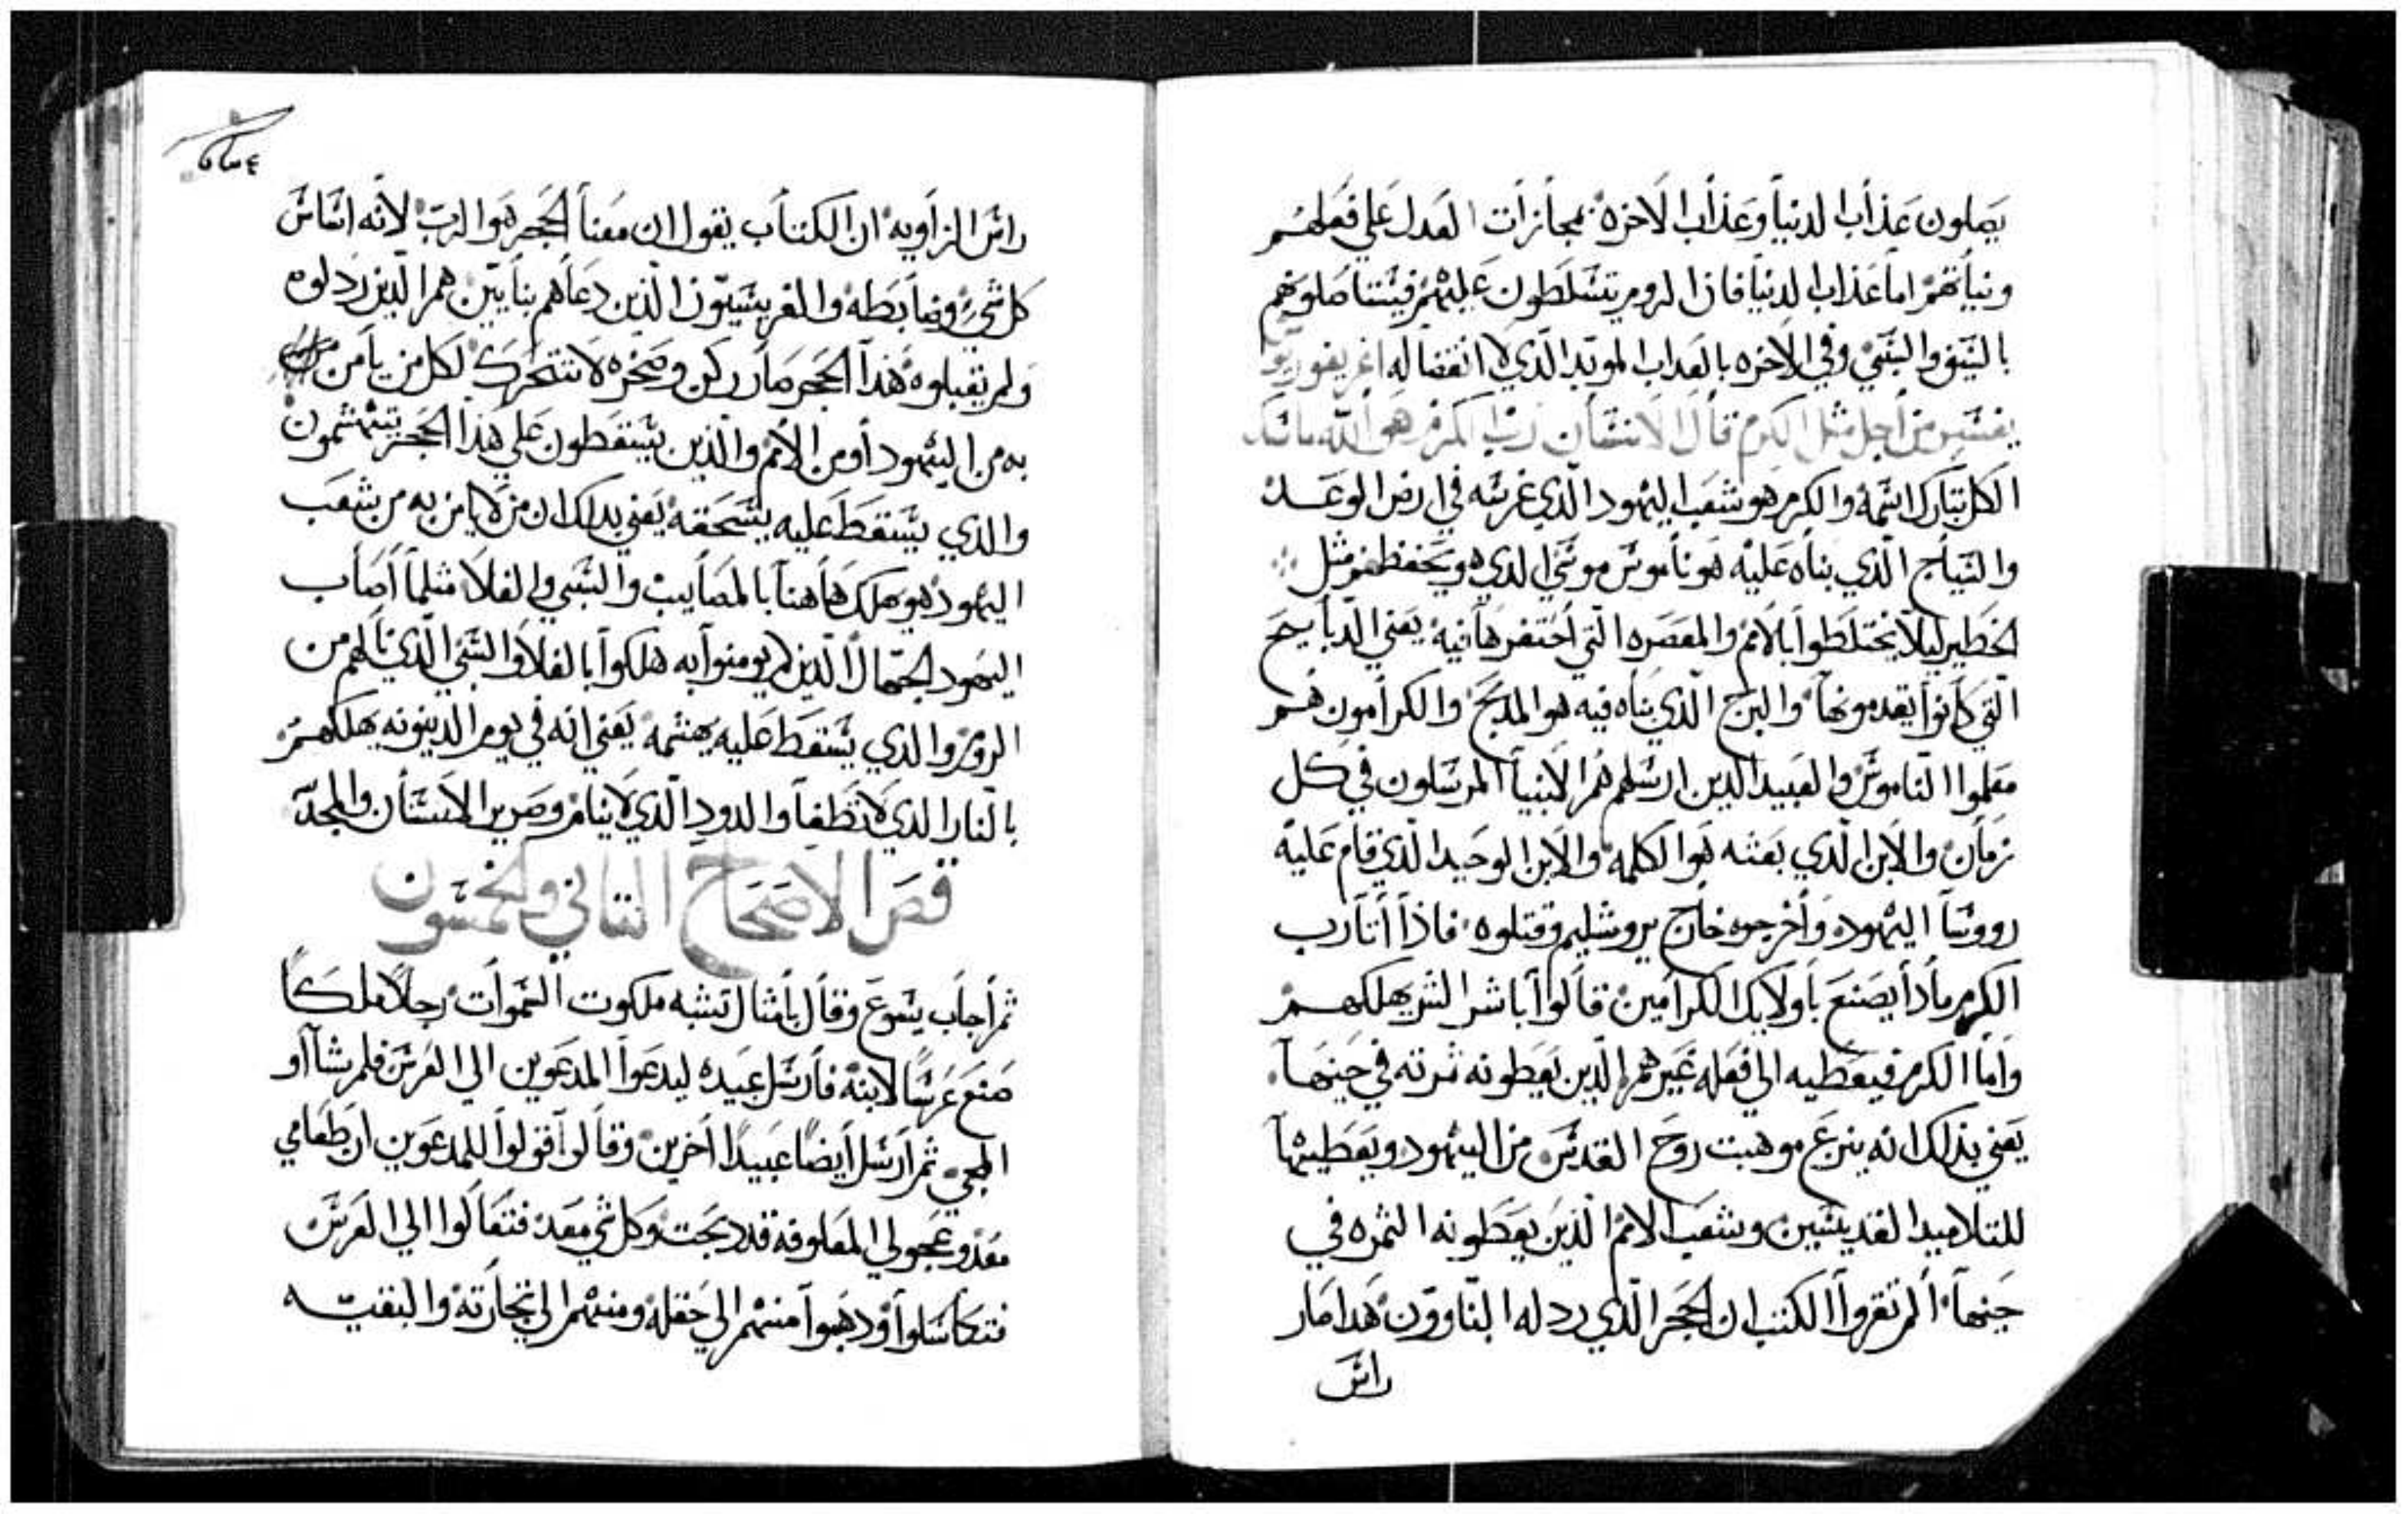 يصلون عذاب الدنيا وعذاب الاخره بمجازات العدل علي فعلهم
ونياتهم اما عذاب الدنيا فان الروم يتسلطون عليهم فيستاصلوهم
بالسيف والسبي وفي الاخره بالعداب الموبد الذي لا انقضا له اغريغوريوس
يفسر من اجل مثل الكرم قال الانسان رب الكرم هو الله ماسك
الكل تبارك اسمه والكرم هو شعب اليهود الذي غرسه في ارض الوعد
والسياج الذي بناه عليه هو ناموس موسي الدي هو يحفظهم مثل
الخطير ليلا يختلطوا بالامم والمعصره التي احتفرها فيه يعني الدبايح
التي كانوا يقدمونها والبرج الذي بناه فيه هو المدبح والكرامون هم
معلموا الناموس والعبيد الدين ارسلهم هم الانبيا المرسلون في كل
زمان والابن الذي بعثه هو الكلمه والابن الوحيد الذي قام عليه
رووسا اليهود واخرجوه خارج يروشليم وقتلوه فاذا اتا رب
الكرم مادا يصنع باولايك الكرامين قالوا باشر الشر يهلكهم
واما الكرم فيعطيه الي فعله غيرهم الدين يعطونه ثمرته في حينها
يعني بذلك انه ينزع موهبت روح القدس من اليهود ويعطيها
للتلاميد القديسين وشعب الامم الذين يعطونه الثمره في
حينها الم تقروا الكتب ان الحجر الذي ردله البناوون هدا صار
راس
راس الزاويه ان الكتاب يقول ان معنا الحجر هو الرب لانه اساس
كل شي وضابطه والفريسيون الذين دعاهم بنايين هم الذين ردلوه
ولم يقبلوه هذا الحجر صار ركن وصخره لا تتحرك لكل من يامن
به من اليهود او من الامم والذين يسقطون علي هذا الحجر يتهشمون
والذي يسقط عليه يسحقه يعني بدلك ان من لا يامن به من شعب
اليهود هو يهلك هاهنا بالمصايب والسبي والغلا مثلما اصاب
اليهود الجهال الذين لم يومنوا به هلكوا بالغلا والسبي الذي نالهم من
الروم والدي يسقط عليه يهشمه يعني انه في يوم الدينونه يهلكهم
بالنار الدي لا تطفا والدود الذي لا ينام وصرير الاسنان والمجد
قص الاصحاح التاني والخمسون
ثم اجاب يسوع وقال بامثال تشبه ملكوت السموات رجلا ملكا
صنع عرسا لابنه فارسل عبيده ليدعوا المدعوين الي العرس فلم يشااو
المجي ثم ارسل ايضا عبيدا اخرين وقال قولوا للمدعوين ان طعامي
معد وعجولي المعلوفه قد دبحت وكل شي معد فتعالوا الي العرس
فتكاسلوا ودهبوا منهم الي حقله ومنهم الي تجارته والبقيه